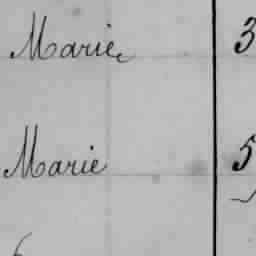 Marie 3
Marie 5